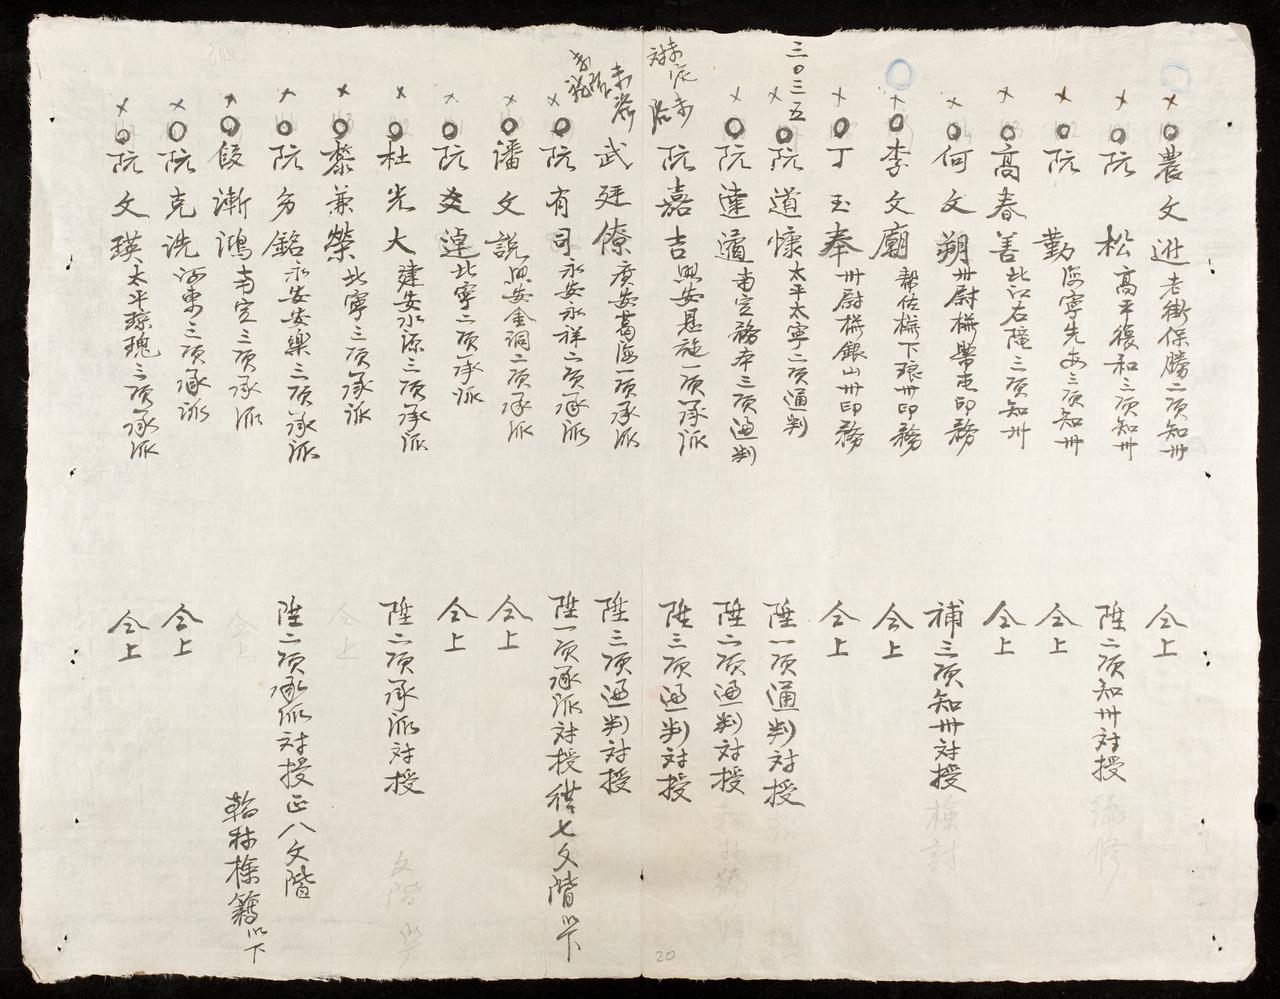 農文逰老街保勝二項知卅
仝上
阮松高平復和三項知卅
陞二項知卅対授
阮勤海寧先安三項知卅
仝上
高春善北江右隴三項知卅
仝上
何文朔卅尉権帶屯印務
補三項知卅対授
李文廟幇佐権下琅卅印務
仝上
丁玉奉卅尉権銀山卅印務
仝上
三〇三五
阮道慷太平太寧二項通判
陞一項通判対授
阮達道南定務本三項通判
陞二項通判対授
阮嘉吉興安恩施一項承派
陞三項通判対授
武廷僚廣安葛海一項承派
陞三項通判対授
阮有司永安永祥二項承派
陞一項承派対授從七文階以下
潘文説興安金洞二項承派
仝上
阮爻逴北寧二項承派
仝上
杜光大建安水源三項承派
陞二項承派対授
黎兼榮北寧三項承派
阮芳銘永安安樂三項承派
陞二項承派対授正八文階
段漸鴻南定三項承派
翰林檢籍以下
阮克洗河東三項承派
仝上
阮文瑛太平瓊瑰三項承派
仝上
20